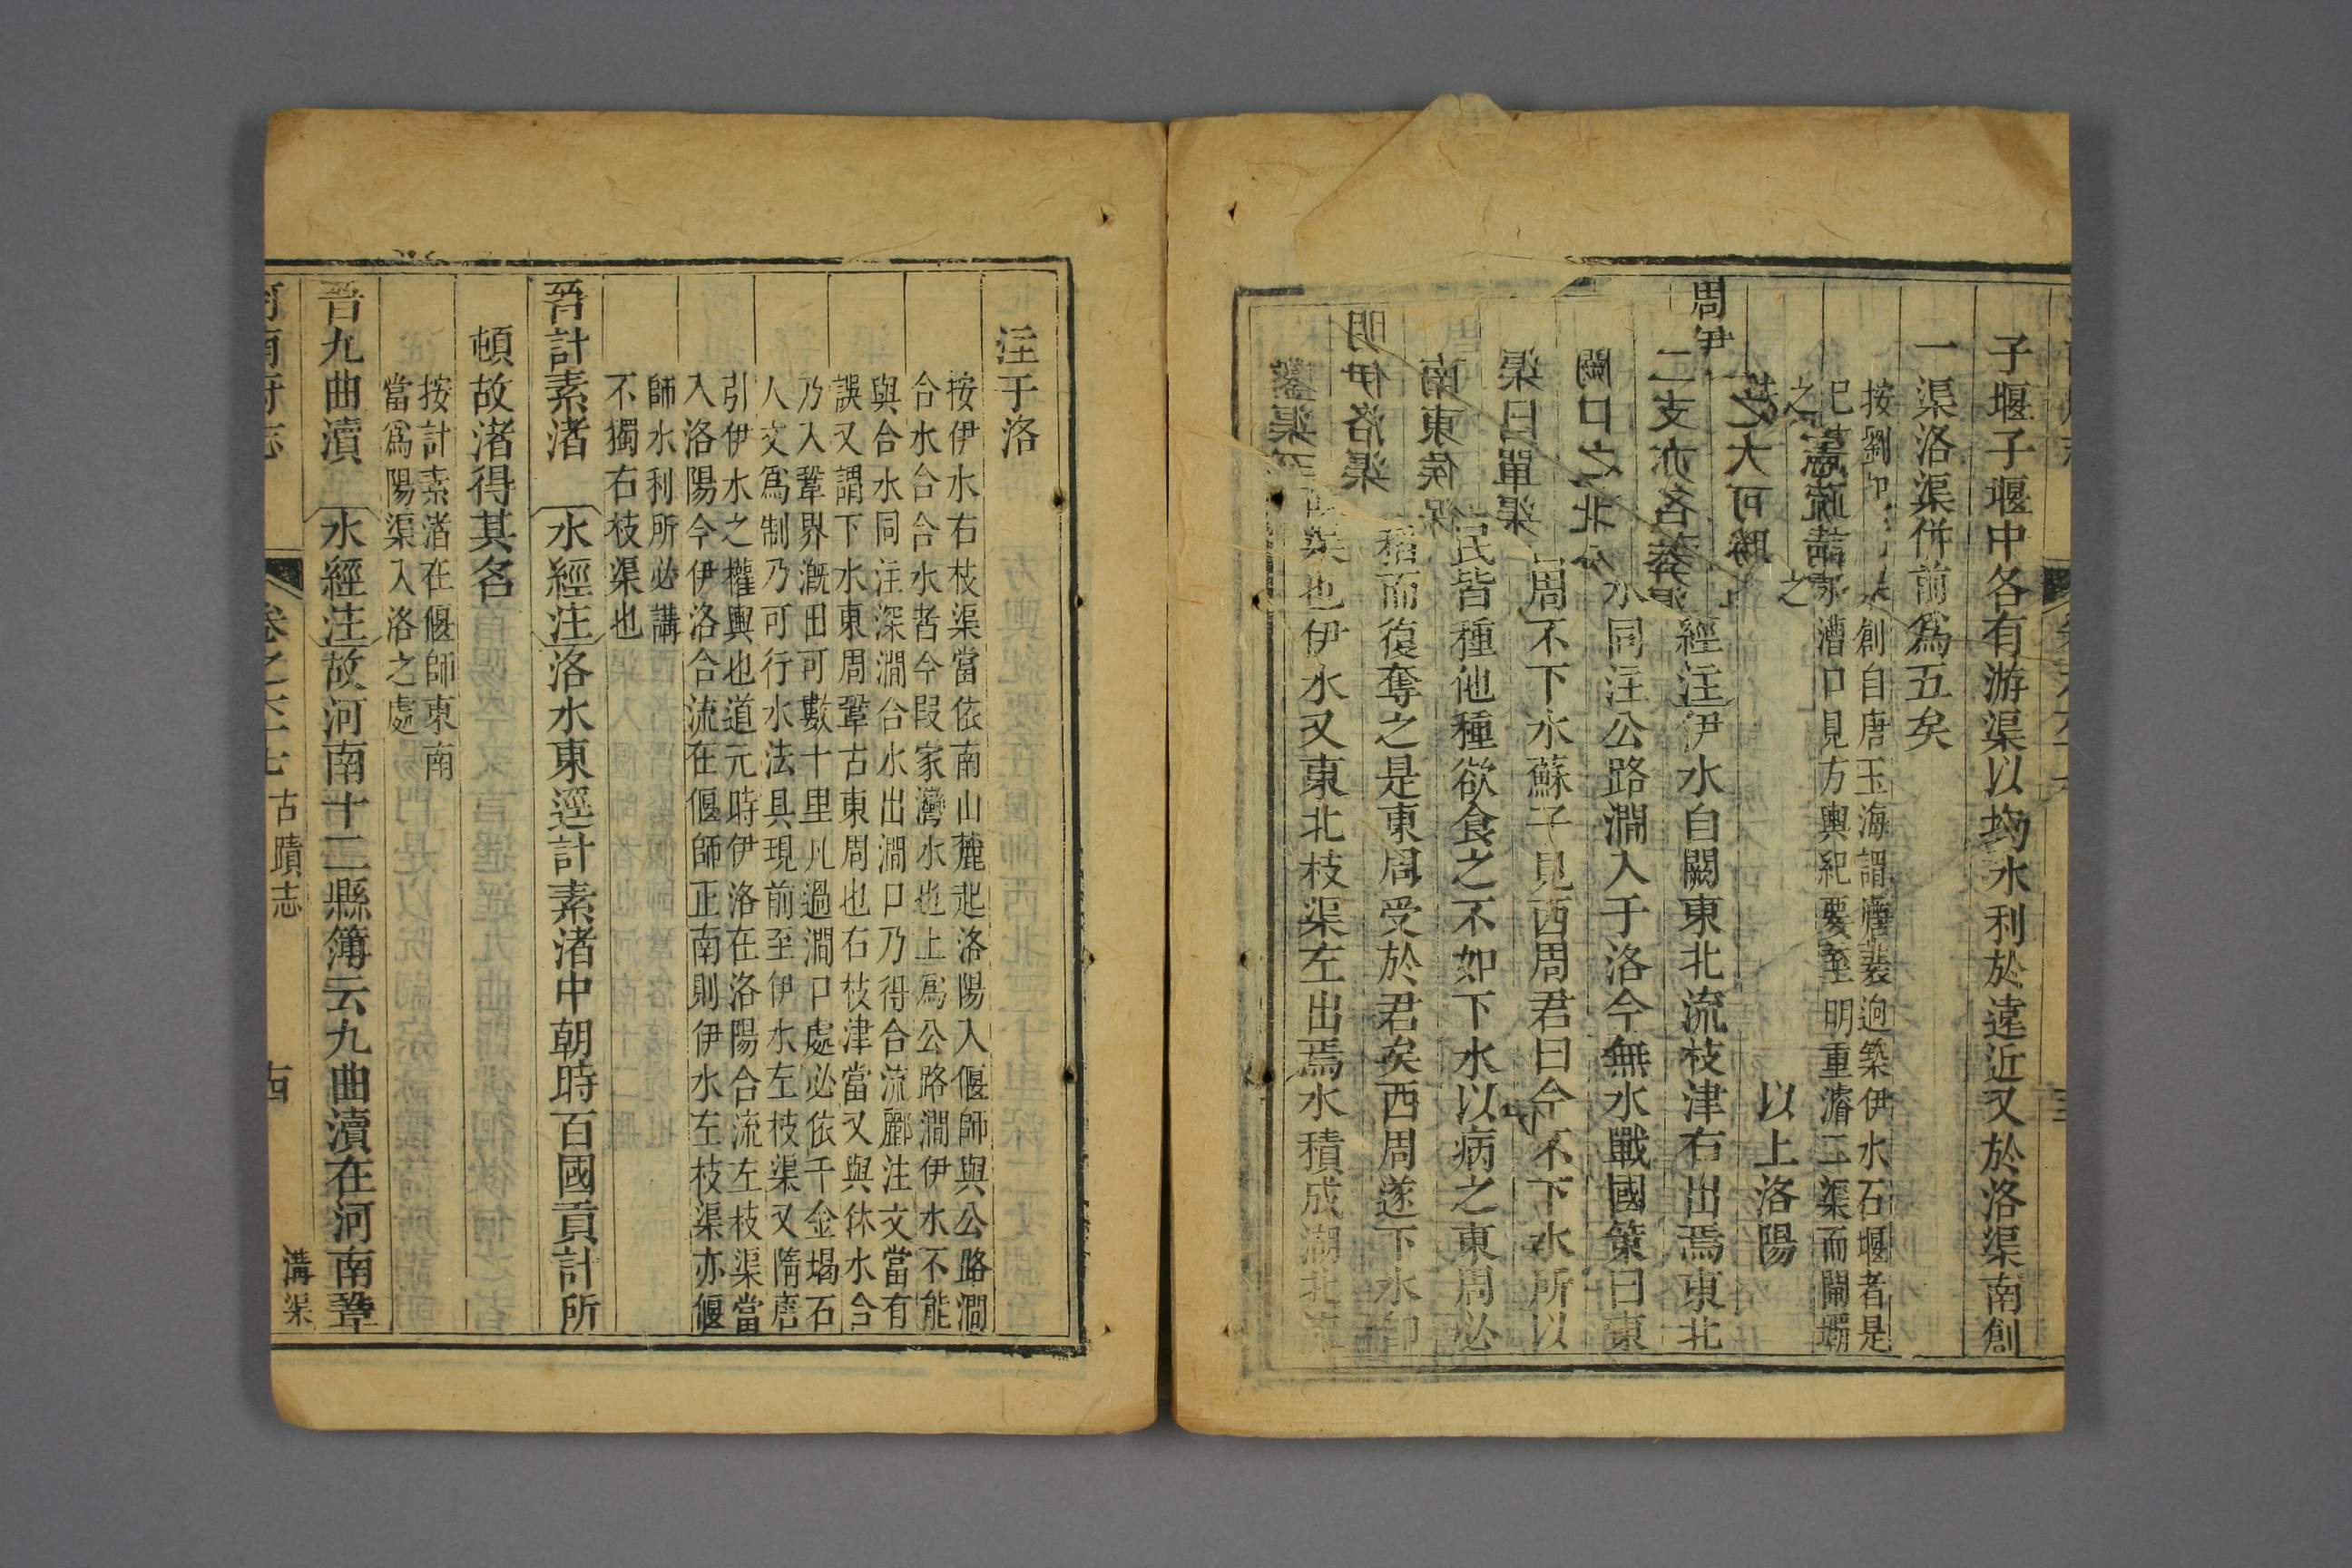 子堰子堰中各有游渠以均水利於遠近又於洛渠南創
一渠洛渠併前爲五矣
按劉創自唐玉海謂唐裴迥築伊水石堰者是
漕口見方輿紀要至明重濬三渠而開壩
之
以上洛陽
周伊
經注伊水自闕東北流枝津右出焉東北
水同注公路澗入于洛今無水戰國策曰東
周不下水蘇子見西周君曰今不下水所以
民皆種他種欲食之不如下水以病之東周必
稻而復奪之是東周受於君矣西周遂下水卽
渠也伊水又東北枝渠左出焉水積成湖北
注于洛
按伊水右枝渠當依南山麓起洛陽入偃師與公路澗
合水合合水者今叚家灣水也上爲公路澗伊水不能
與合水同注深澗合水出澗口乃得合流酈注文當有
誤又謂下水東周鞏古東周也右枝津當又與休水合
乃入鞏界漑田可數十里凡過澗口處必依千金堨石
人文爲制乃可行水法具現前至伊水左枝渠又隋唐
引伊水之權輿也道元時伊洛在洛陽合流左枝渠當
入洛陽今伊洛合流在偃師正南則伊水左枝渠亦偃
師水利所必講
不獨右枝渠也
晉計素渚 水經注洛水東逕計素渚中朝時百國貢計所
頓故渚得其名
按計素渚在偃師東南
當爲陽渠入洛之處
晉九曲瀆 水經注故河南十二縣簿云九曲瀆在河南鞏
河南府志 卷之六十七 古蹟志 溝渠